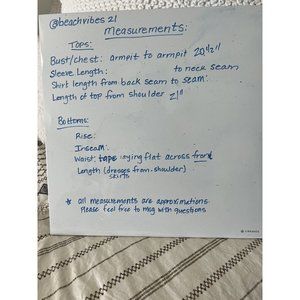 @beachvibes21
Measurements:
Tops:
Bust/chest: armpit to armpit 20 1/2"
Sleeve Length: to neck seam
Shirt length from back seam to seam:
Length of top from shoulder 21"
Bottoms:
Rise:
Inseam:
Waist: tape laying flat across front
Length (dresses from shoulder)
skirts
* all measurements are approximations
Please feel free to msg with questions